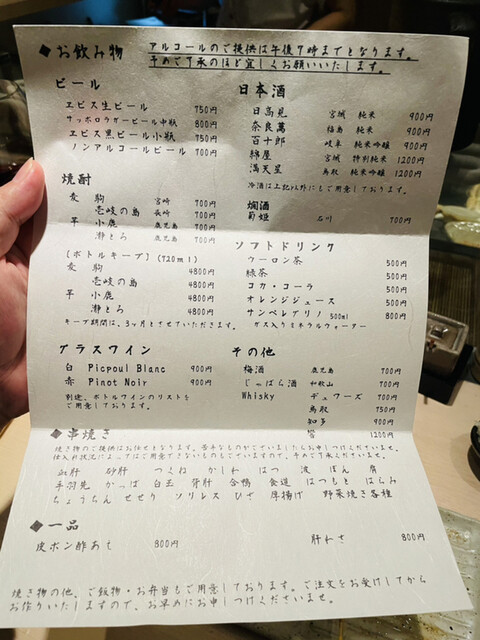 ◆お飲み物
アルコールのご提供は午後7時までとなります。
予めご了承のほど宜しくお願いいたします。
ビール
ヱビス生ビール 750円
サッポロラガービール中瓶 800円
ヱビス黒ビール小瓶 750円
ノンアルコールビール 700円
焼酎
麦 駒 宮崎 700円
壱岐の島 長崎 700円
芋 小鹿 鹿児島 700円
瀞とろ 鹿児島 700円
[ボトルキープ] (720ml)
麦 駒 4800円
壱岐の島 4800円
芋 小鹿 4800円
瀞とろ 4800円
キープ期間は、3ヶ月とさせていただきます。
グラスワイン
白 Picpoul Blanc 900円
赤 Pinot Noir 900円
別途、ボトルワインのリストを
ご用意しております。
日本酒
日高見 宮城 純米 900円
奈良萬 福島 純米 900円
百十郎 岐阜 純米吟醸 900円
綿屋 宮城 特別純米 1200円
満天星 鳥取 純米吟醸 1200円
冷酒は上記以外にもご用意しております。
燗酒
菊姫 石川 700円
ソフトドリンク
ウーロン茶 500円
緑茶 500円
コカ・コーラ 500円
オレンジジュース 500円
サンペレグリノ 500ml 800円
ガス入りミネラルウォーター
その他
梅酒 鹿児島 700円
じゃばら酒 和歌山 700円
Whisky デュワーズ 700円
鳥取 750円
知多 900円
1200円
◆串焼き
焼き物のご提供はお任せとなります。苦手なものがございましたらお申しつけくださいませ。
仕入れ状況によってはご用意できないものもございますので、予めご了承くださいませ。
血肝 砂肝 つくね かしわ はつ 波 ぼん 肩
手羽先 かっぱ 白玉 背肝 合鴨 食道 はつもと はらみ
ちょうちん せせり ソリレス ひざ 厚揚げ 野菜焼き各種
◆一品
皮ポン酢あえ 800円
肝わさ 800円
焼き物の他、ご飯物・お弁当もご用意しております。ご注文をお受けしてから
お作りいたしますので、お早めにお申しつけくださいませ。